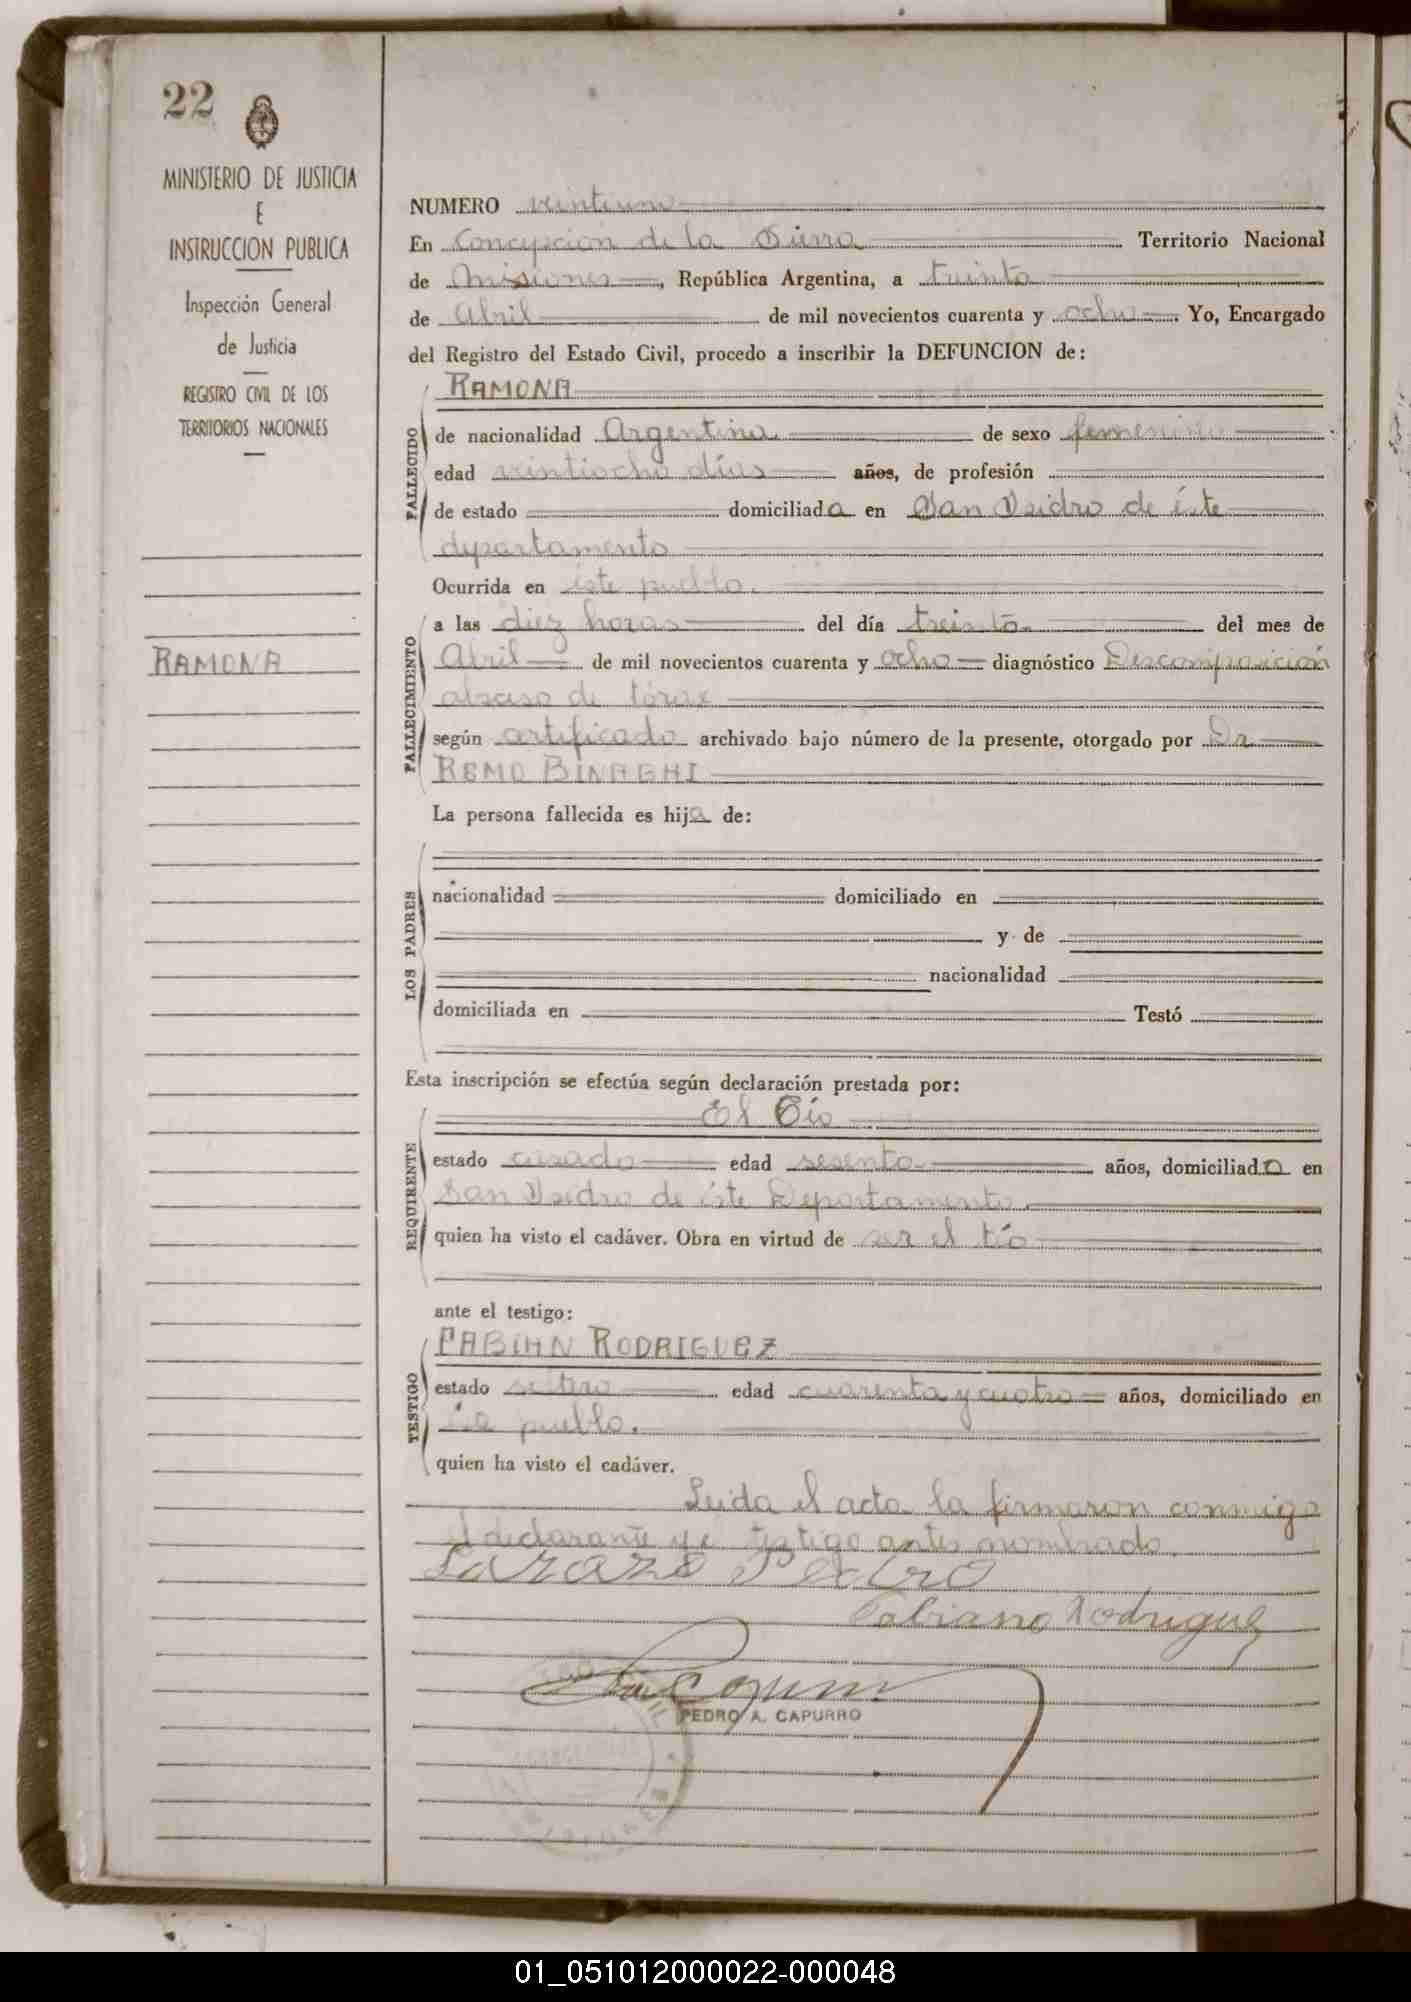 22
MINISTERIO DE JUSTICIA
E
INSTRUCCION PUBLICA
Inspección General
de Justicia
REGISTRO CIVIL DE LOS
TERRITORIOS NACIONALES
RAMONA
NUMERO veintiuno
En Concepción de la Sierra Territorio Nacional
de Misiones, República Argentina, a treinta
de Abril de mil novecientos cuarenta y ocho Yo, Encargado
del Registro del Estado Civil, procedo a inscribir la DEFUNCION de:
RAMONA
FALLECIDO
de nacionalidad Argentina. de sexo femenino
edad veintiocho días años, de profesión
de estado domiciliada en San Isidro de éste
departamento
Ocurrida en éste pueblo.
FALLECIMIENTO
a las diez horas del día treinta del mes de
Abril de mil novecientos cuarenta y ocho diagnóstico Descomposición
abseso de tórax
según certificado archivado bajo número de la presente, otorgado por Dr
REMO BINAGHI
La persona fallecida es hija de:
LOS PADRES
nacionalidad domiciliado en
y de
nacionalidad
domiciliada en Testó
Esta inscripción se efectúa según declaración prestada por:
El Tío
REQUIRENTE
estado casado edad sesenta años, domiciliado en
San Isidro de éste Departamento.
quien ha visto el cadáver. Obra en virtud de ser el tío
ante el testigo:
FABIAN RODRIGUEZ
TESTIGO
estado soltero edad cuarenta y cuatro años, domiciliado en
éste pueblo.
quien ha visto el cadáver.
Leida el acta la firmaron conmigo
el declarante y el testigo antes nombrado.
Larazo Pedro
Fabiano Rodriguez
PEDRO A. CAPURRO
01_051012000022-000048